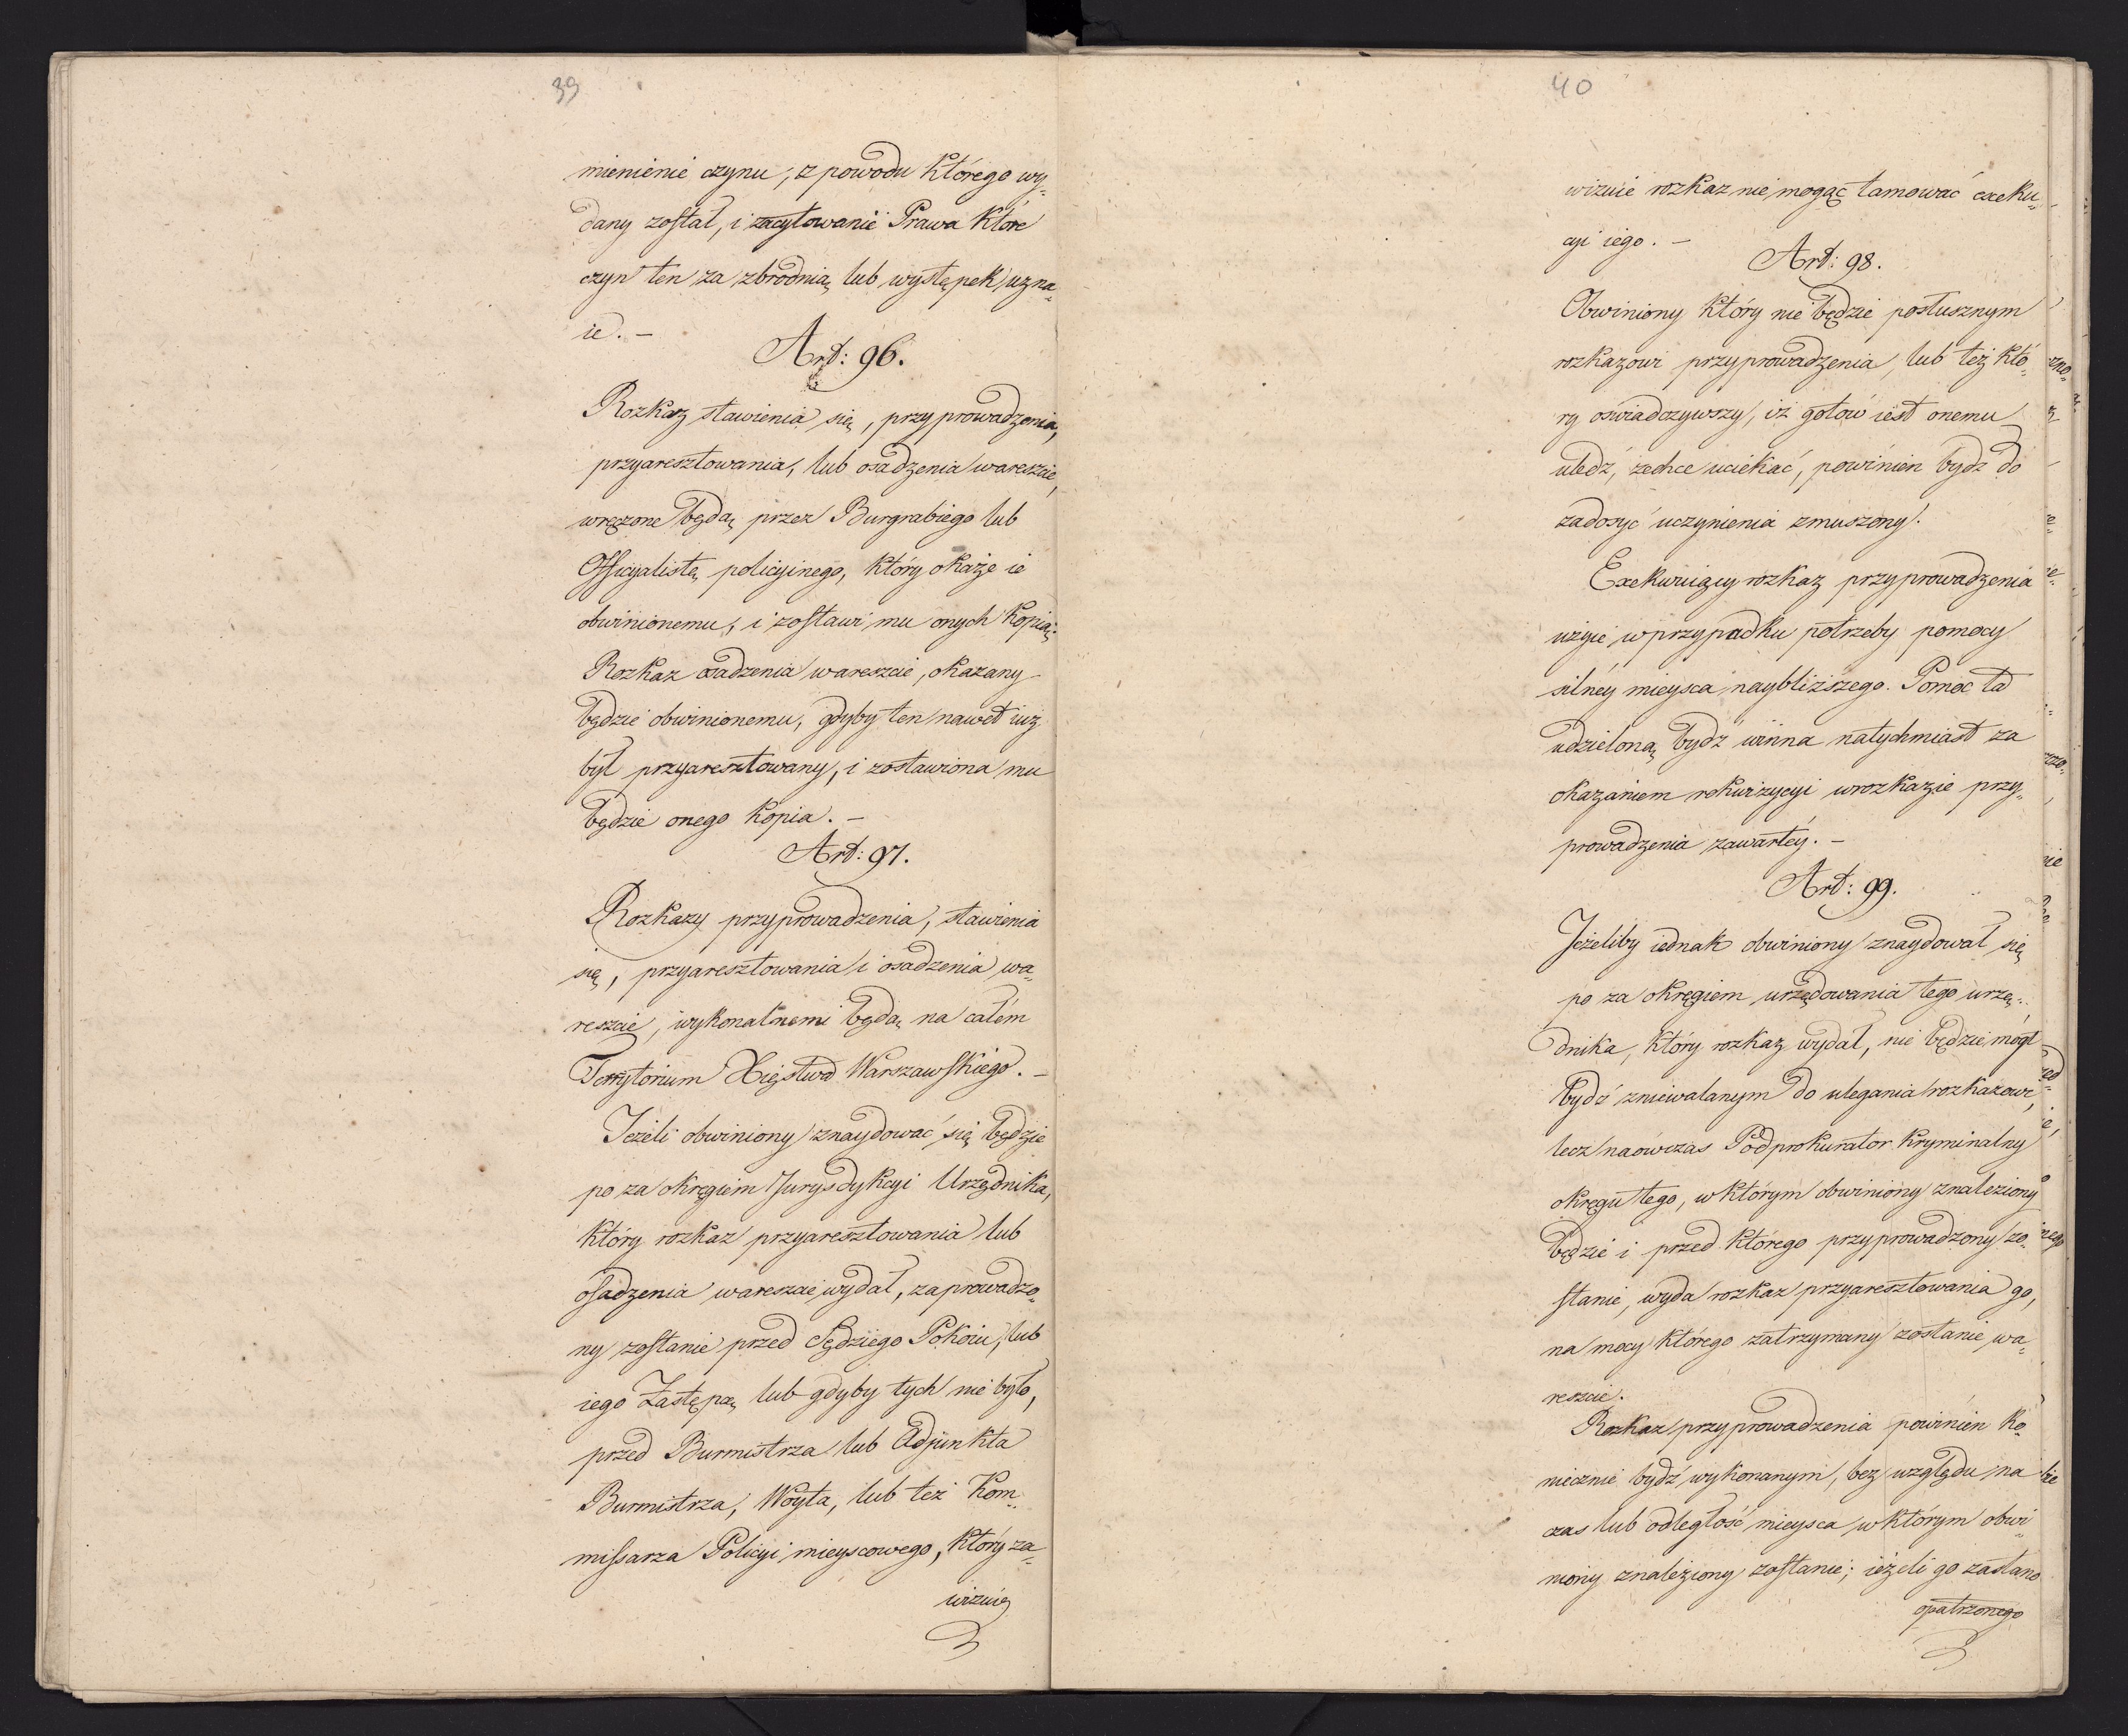 39
mienienie czynu, z powodu którego wy„
dany został, i zacytowanie Prawa które
czyn ten za zbrodnią lub występek uzna„
ie. –
Art: 96.
Rozkaz stawienia się, przyprowadzenia,
przyaresztowania, lub osadzenia wareszcie,
wręczone będą przez Burgrabiego lub
Officyalistę policyinego, który okaże ie
obwinionemu, i zostawi mu onych kopią.
Rozkaz osadzenia wareszcie, okazany
będzie obwinionemu, gdyby ten nawet iuż
był przyaresztowany, i zostawiona mu
będzie onego kopia. –
Art: 97.
Rozkazy przyprowadzenia, stawienia
się, przyaresztowania i osadzenia wa„
reszcie, wykonalnemi będą na całém
Terrytorium Xięstwa Warszawskiego. –
Jeżeli obwiniony znaydować się będzie
po za okręgiem Jurysdykcyi Urzędnika,
który rozkaz przyaresztowania lub
osadzenia wareszcie wydał, zaprowadzo„
ny zostanie przed Sędziego Pokoiu, lub
iego Zastępcę lub gdyby tych nie było,
przed Burmistrza lub Adjunkta
Burmistrza, Woyta, lub też Kom„
missarza Policyi mieyscowego, który za„
wizuie
40
wizuie rozkaz nie mogąc tamować exeku„
cyi iego. –
Art: 98.
Obwiniony który nie będzie posłusznym
rozkazowi przyprowadzenia, lub też któ„
ry oświadczywszy, iż gotów iest onemu
uledz, zechce uciekać, powinien bydź do
zadosyć uczynienia zmuszony.
Exekwuiący rozkaz przyprowadzenia
użyie w przypadku potrzeby pomocy
silnéy mieysca naybliższego. Pomoc ta
udzieloną bydź winna natychmiast za
okazaniem rekwizycyi wrozkazie przy„
prowadzenia zawartéy. –
Art: 99.
Jeżeliby iednak obwiniony znaydował się
po za okręgiem urzędowania tego urzę„
dnika, który rozkaz wydał, nie będzie mógł
bydź zniewalanym do ulegania rozkazowi,
lecz naówczas Podprokurator Kryminalny
okręgu tego, w którym obwiniony znaleziony
będzie i przed którego przyprowadzony zo„
stanie, wyda rozkaz przyaresztowania go,
na mocy którego zatrzymany zostanie wa„
reszcie.
Rozkaz przyprowadzenia powinien ko„
niecznie bydź wykonanym, bez względu na
czas lub odległość mieysca w którym obwi„
niony znaleziony zostanie; ieżeli go zastano
opatrzonego